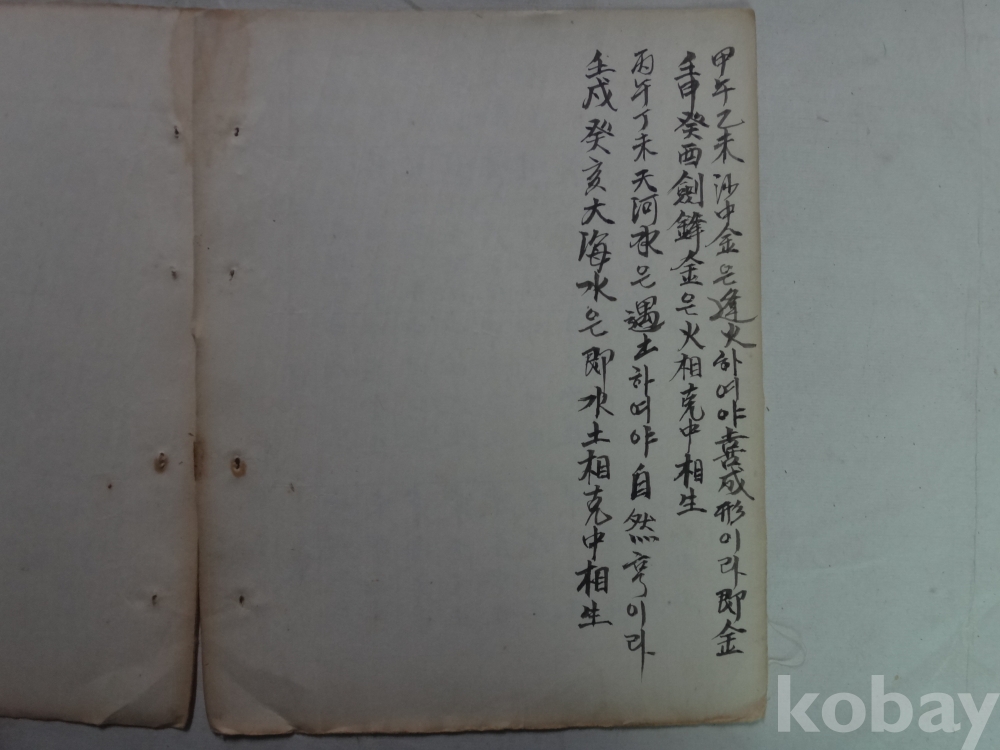 甲午乙未沙中金은逢火하여야喜成形이라即金
壬申癸酉劍鋒金은火相克中相生
丙午丁未天河水은遇土하여야自然亨이라
壬戌癸亥大海水은即水土相克中相生
kobay